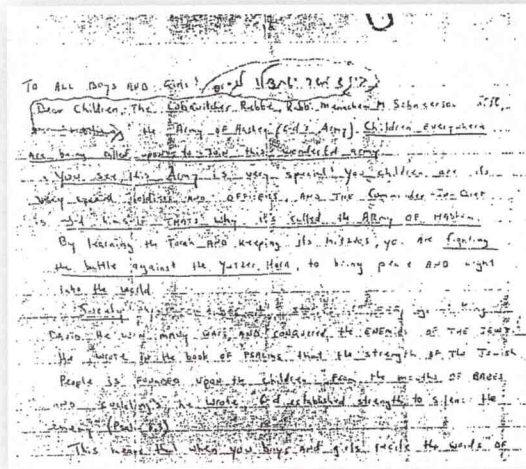 TO ALL BOYS AND Girls!
Dear Children, The Lubavitcher Rebbe, Rabbi Menachem M. Schneerson
the Army of Hashem (God's Army). Children Everywhere
are being called upon to Join this wonderful army.
You see this Army is very special! You children are its
very special soldiers AND OFFICERS, AND THE Commander-in-Chief
is God himself THATS why it's called the ARMY OF HASHEM.
By learning the Torah AND keeping its Mitzvos, you are fighting
the battle against the Yetzer Hora, to bring peace AND
into the world.
David. He won MANY WARS, AND CONQUERED the ENEMIES OF THE JEWS.
He wrote in the book OF PSALMS that the strength OF The Jewish
People is FOUNDED upon the children. From the mouths OF BABES
AND sucklings, he wrote, God established strength to silence the
enemy (Psal. 8,3)
This means that when you boys and girls recite the words of